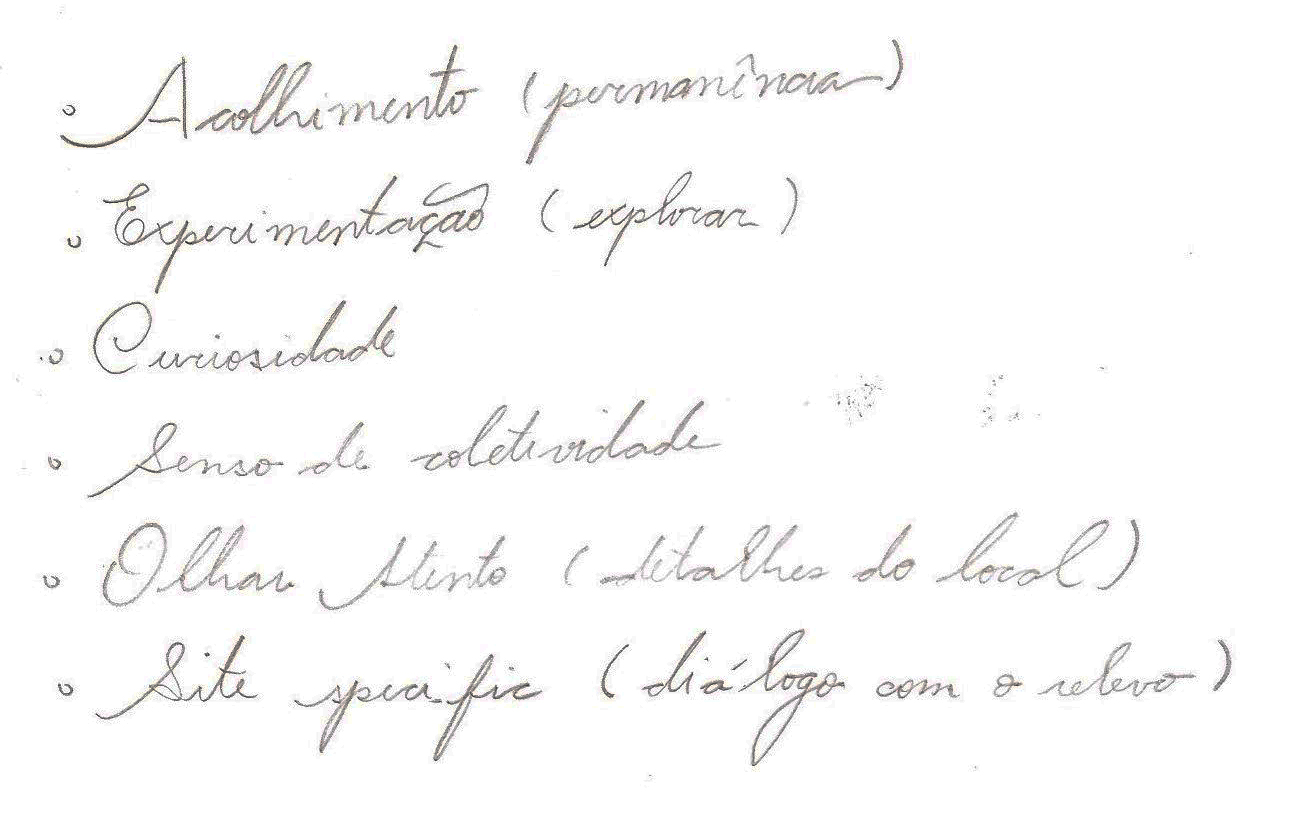 ◦ Acolhimento (permanência)
◦ Experimentação (explorar)
◦ Curiosidade
◦ Senso de coletividade
◦ Olhar Atento (detalhes do local)
◦ Site specific (diálogo com o relevo)